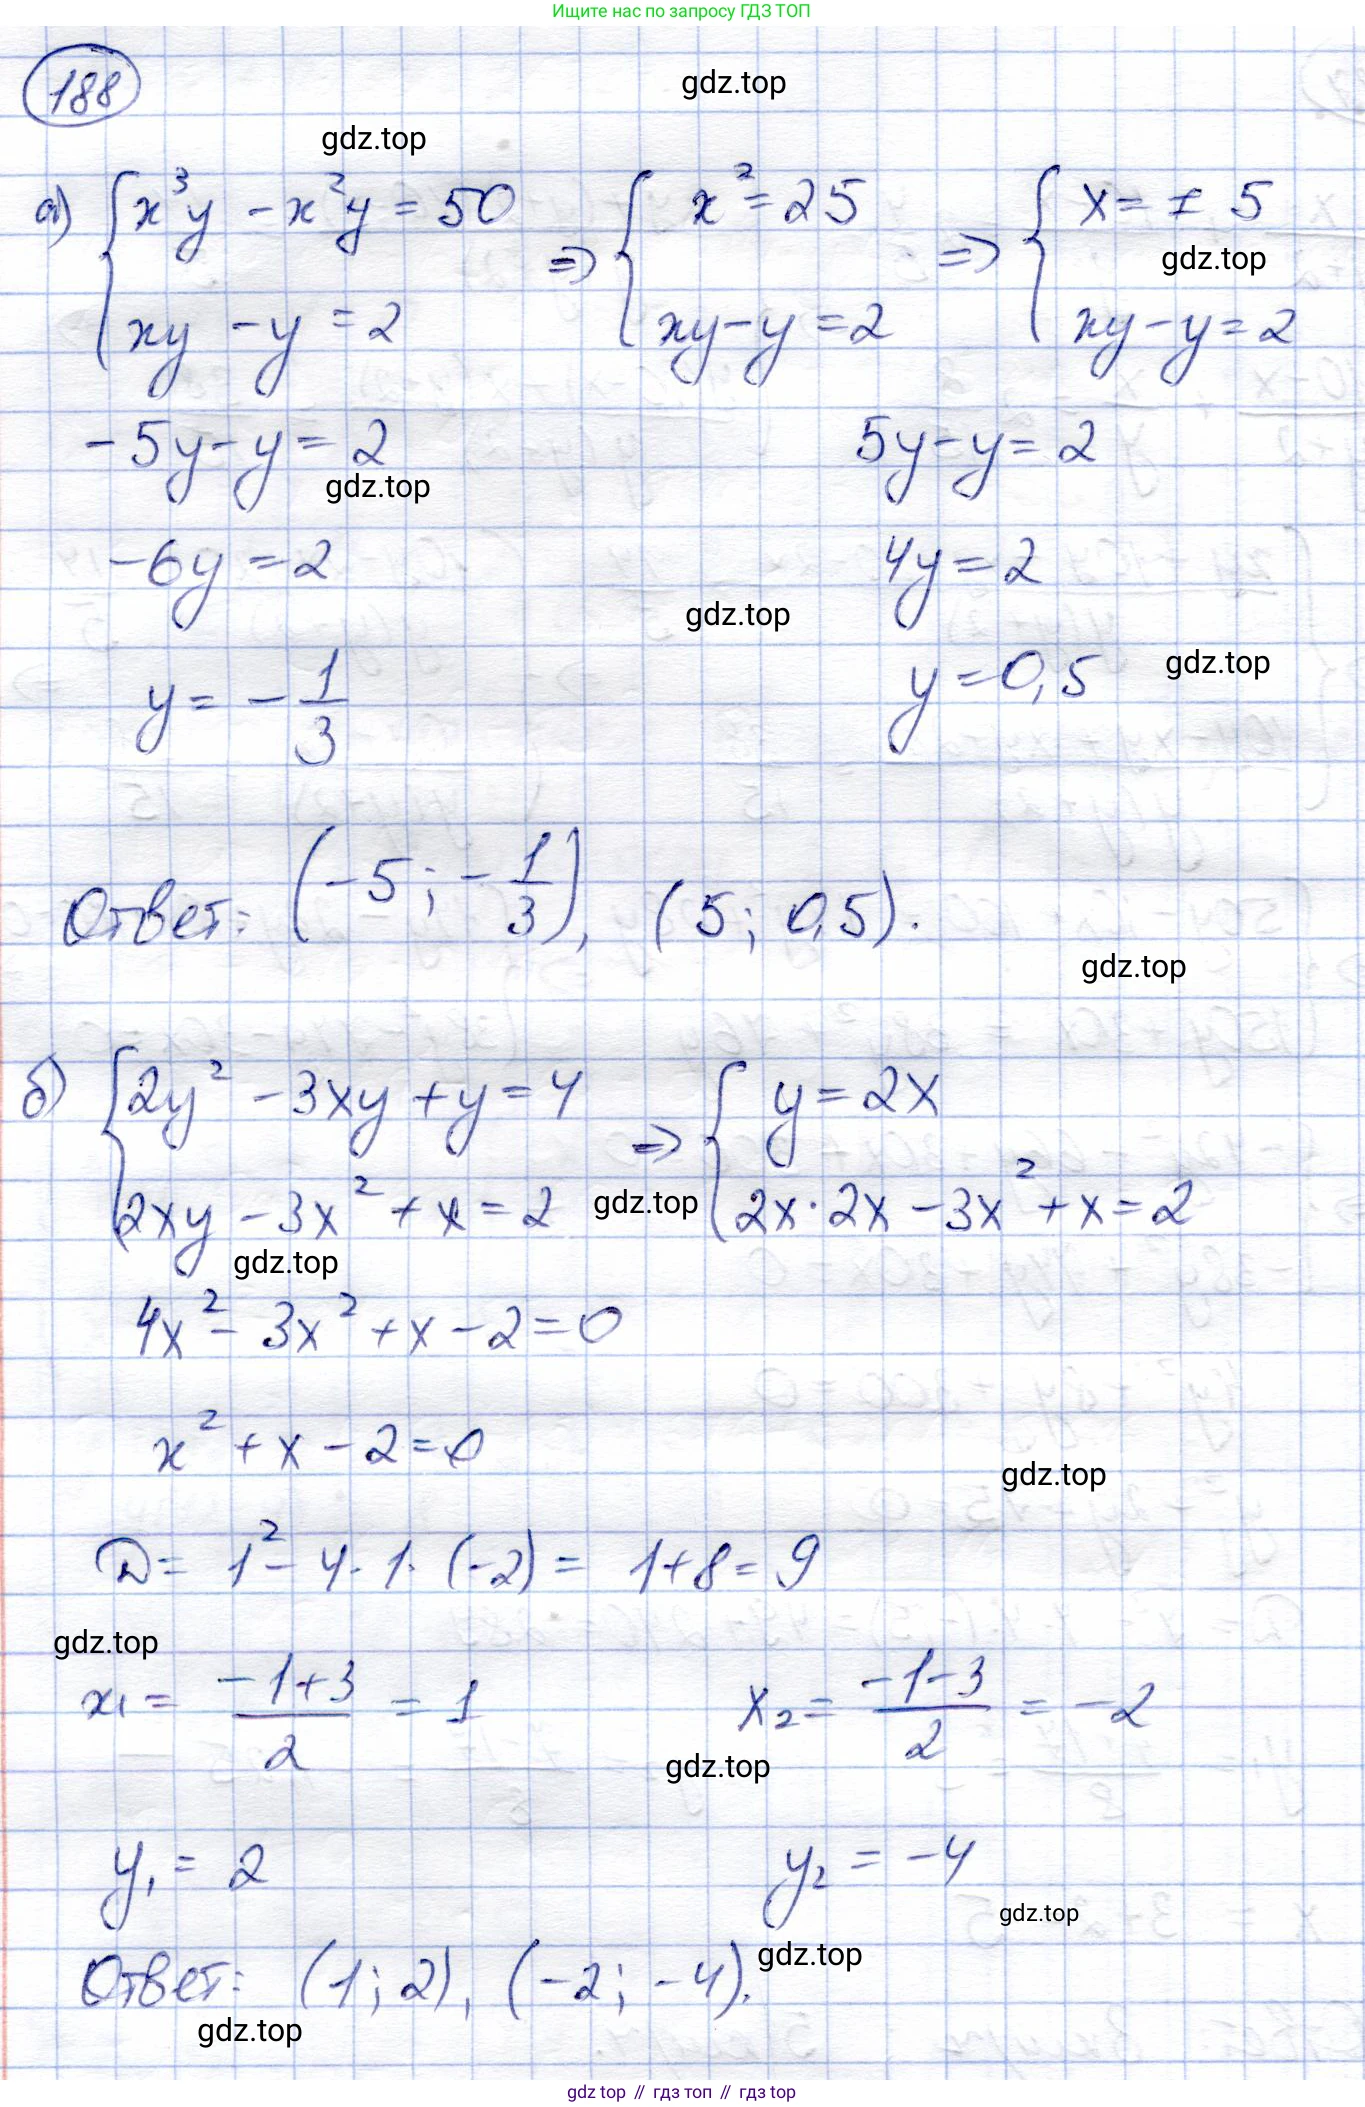 Ищите нас по запросу ГДЗ ТОП
188
gdz.top
gdz.top
а) { x³y - x²y = 50 => { x² = 25 => { x = ± 5
gdz.top
xy - y = 2 xy - y = 2 xy - y = 2
-5y - y = 2 5y - y = 2
gdz.top
-6y = 2 4y = 2
gdz.top
y = -1/3 y = 0,5
gdz.top
Ответ: (-5; -1/3), (5; 0,5).
gdz.top
б) { 2y² - 3xy + y = 4 => { y = 2x
2xy - 3x² + x = 2 2x · 2x - 3x² + x = 2
gdz.top
gdz.top
4x² - 3x² + x - 2 = 0
x² + x - 2 = 0
gdz.top
D = 1² - 4 · 1 · (-2) = 1 + 8 = 9
gdz.top
x₁ = (-1+3)/2 = 1 x₂ = (-1-3)/2 = -2
gdz.top
y₁ = 2 y₂ = -4
gdz.top
gdz.top
Ответ: (1; 2), (-2; -4).
gdz.top
gdz top // гдз топ // гдз top